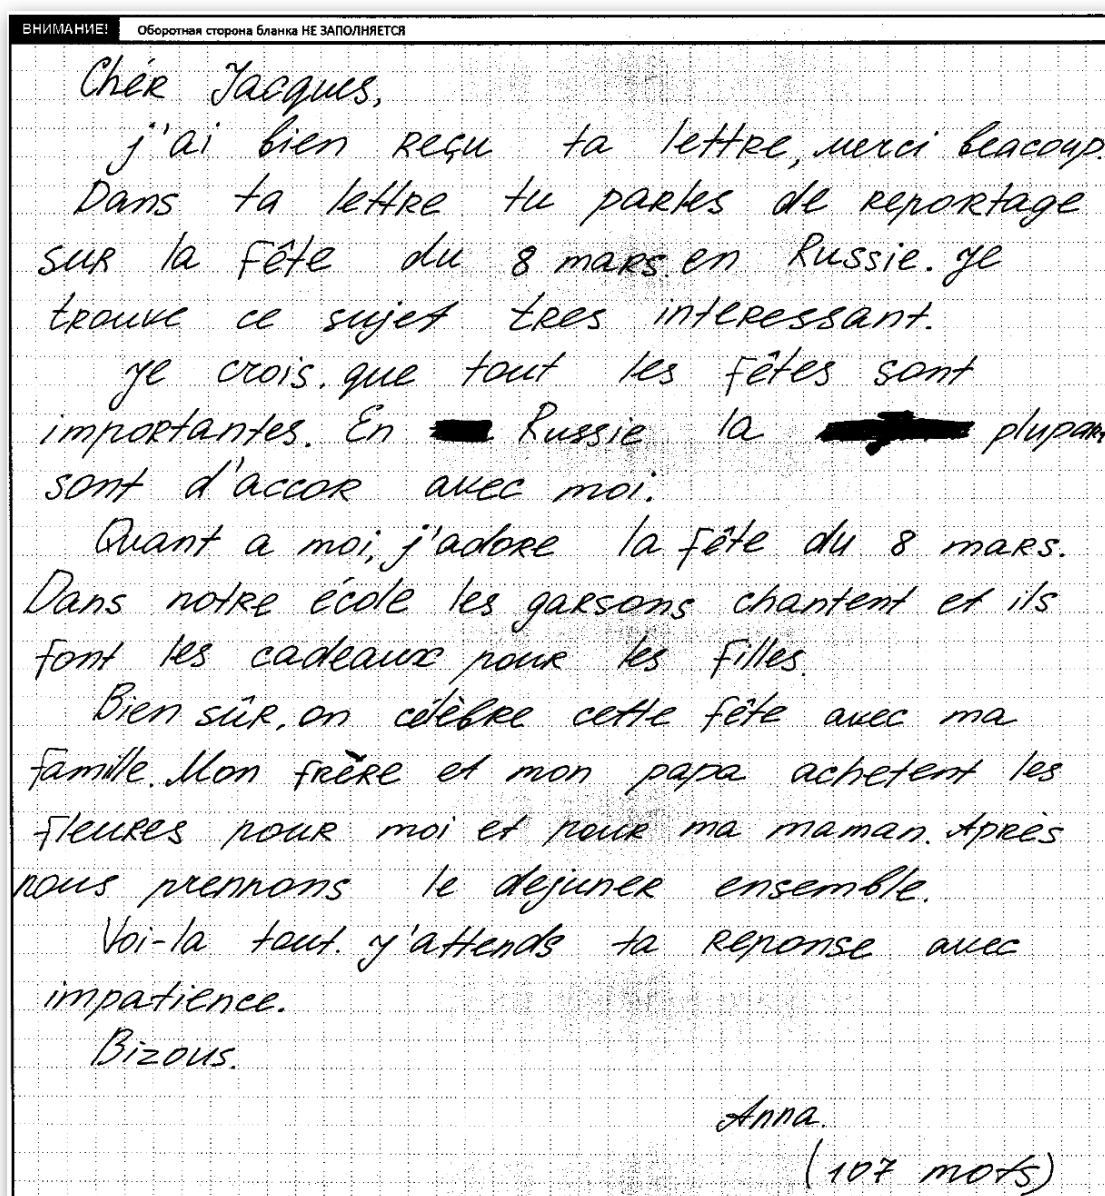 ВНИМАНИЕ! Оборотная сторона бланка НЕ ЗАПОЛНЯЕТСЯ
Chér Jacques,
j'ai bien reçu ta lettre, merci beacoup.
Dans ta lettre tu parles de reportage
sur la fête du 8 mars en Russie. Je
trouve ce sujet tres interessant.
Je crois que tout les fêtes sont
importantes. En Russie la plupart
sont d'accor avec moi.
Quant a moi, j'adore la fête du 8 mars.
Dans notre école les garsons chantent et ils
font les cadeaux pour les filles.
Bien sûr, on célèbre cette fête avec ma
famille. Mon frère et mon papa achetent les
fleures pour moi et pour ma maman. Après
nous prennons le dejuner ensemble.
Voi-la tout. J'attends ta reponse avec
impatience.
Bizous.
Anna.
(107 mots)